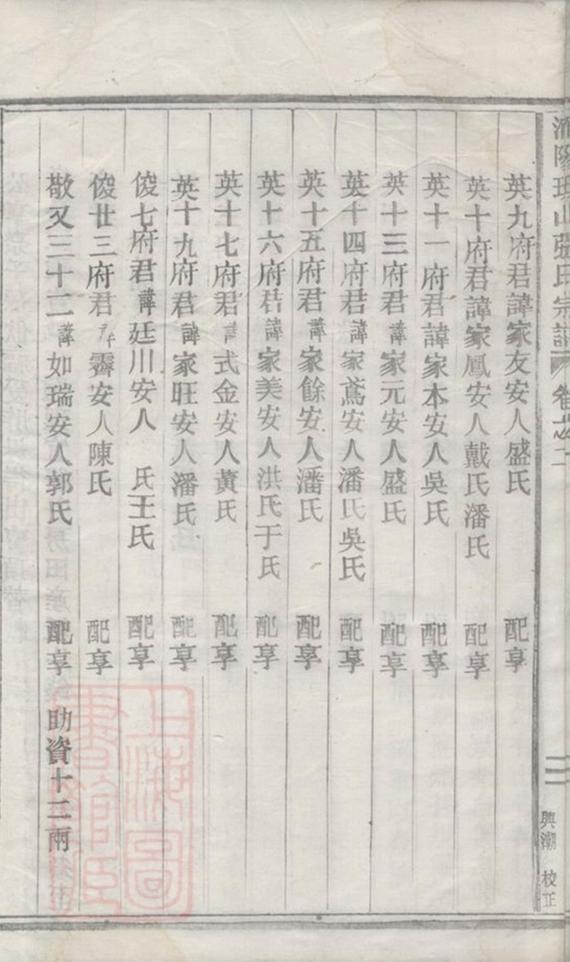 瑞山張氏宗譜 卷之二
英九府君諱家友安人盛氏 配享
英十府君諱家鳳安人戴氏潘氏 配享
英十一府君諱家本安人吳氏 配享
英十三府君諱家元安人盛氏 配享
英十四府君諱家鳶安人潘氏吳氏 配享
英十五府君諱家餘安人潘氏 配享
英十六府君諱家美安人洪氏于氏 配享
英十七府君諱式金安人黃氏 配享
英十九府君諱家旺安人潘氏 配享
俊七府君諱廷川安人 氏王氏 配享
俊廿三府君 霽安人陳氏 配享
敬又三十二諱如瑞安人郭氏 配享 助資十二兩
三 興潮 校正
上海圖書館藏